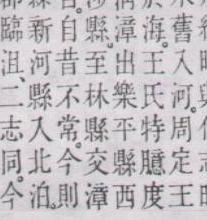 舊入河周定王
海。王氏特臆度
漳出樂平縣西
縣至林縣交漳
自昔不常。今則
新河縣入北泊。
臨沮、二志同。今